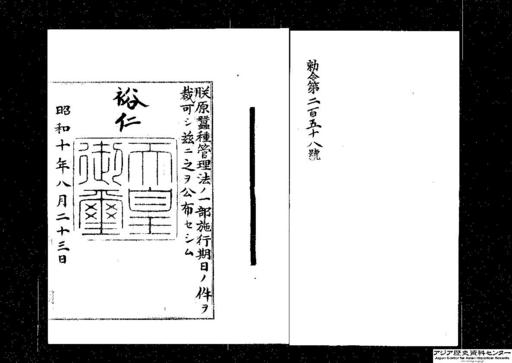 勅令第二百五十八號
朕原蠶種管理法ノ一部施行期日ノ件ヲ
裁可シ茲ニ之ヲ公布セシム
裕仁
天皇
御璽
昭和十年八月二十三日
アジア歴史資料センター
Japan Center for Asian Historical Records